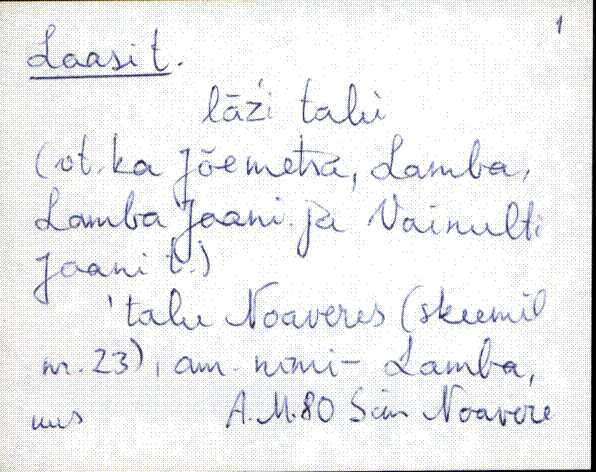 1
Laasi t.
lāźi talu
(vt. ka Jõemetsa, Lamba,
Lamba Jaani ja Vainulti
Jaani t.)
'talu Noaveres (skeemil
nr. 23), am. nimi - Lamba,
uus A.M.80 Sim Noavere